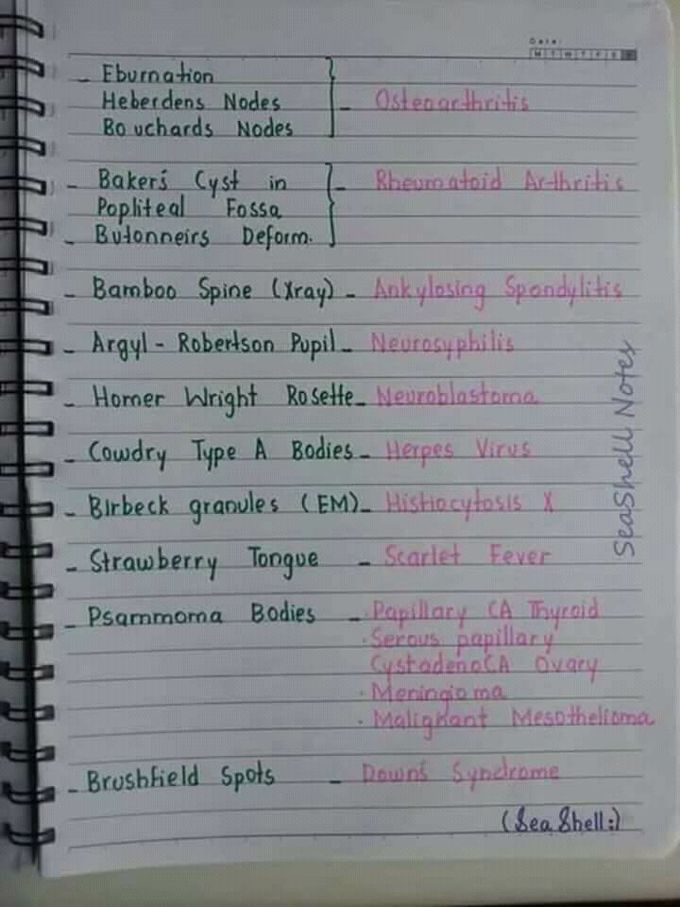 Date:
M T W T F S S
- Eburnation
Heberdens Nodes - Osteoarthritis
Bouchards Nodes
- Baker's Cyst in - Rheumatoid Arthritis
Popliteal Fossa
- Butonneirs Deform.
- Bamboo Spine (Xray) - Ankylosing Spondylitis
- Argyl - Robertson Pupil - Neurosyphilis
- Homer Wright Rosette - Neuroblastoma
- Cowdry Type A Bodies - Herpes Virus
- Birbeck granules (EM) - Histiocytosis X
- Strawberry Tongue - Scarlet Fever
- Psammoma Bodies - Papillary CA Thyroid
· Serous papillary
CystadenoCA Ovary
· Meningioma
· Malignant Mesothelioma
- Brushfield Spots - Down's Syndrome
(SeaShell:)
SeaShell Notes